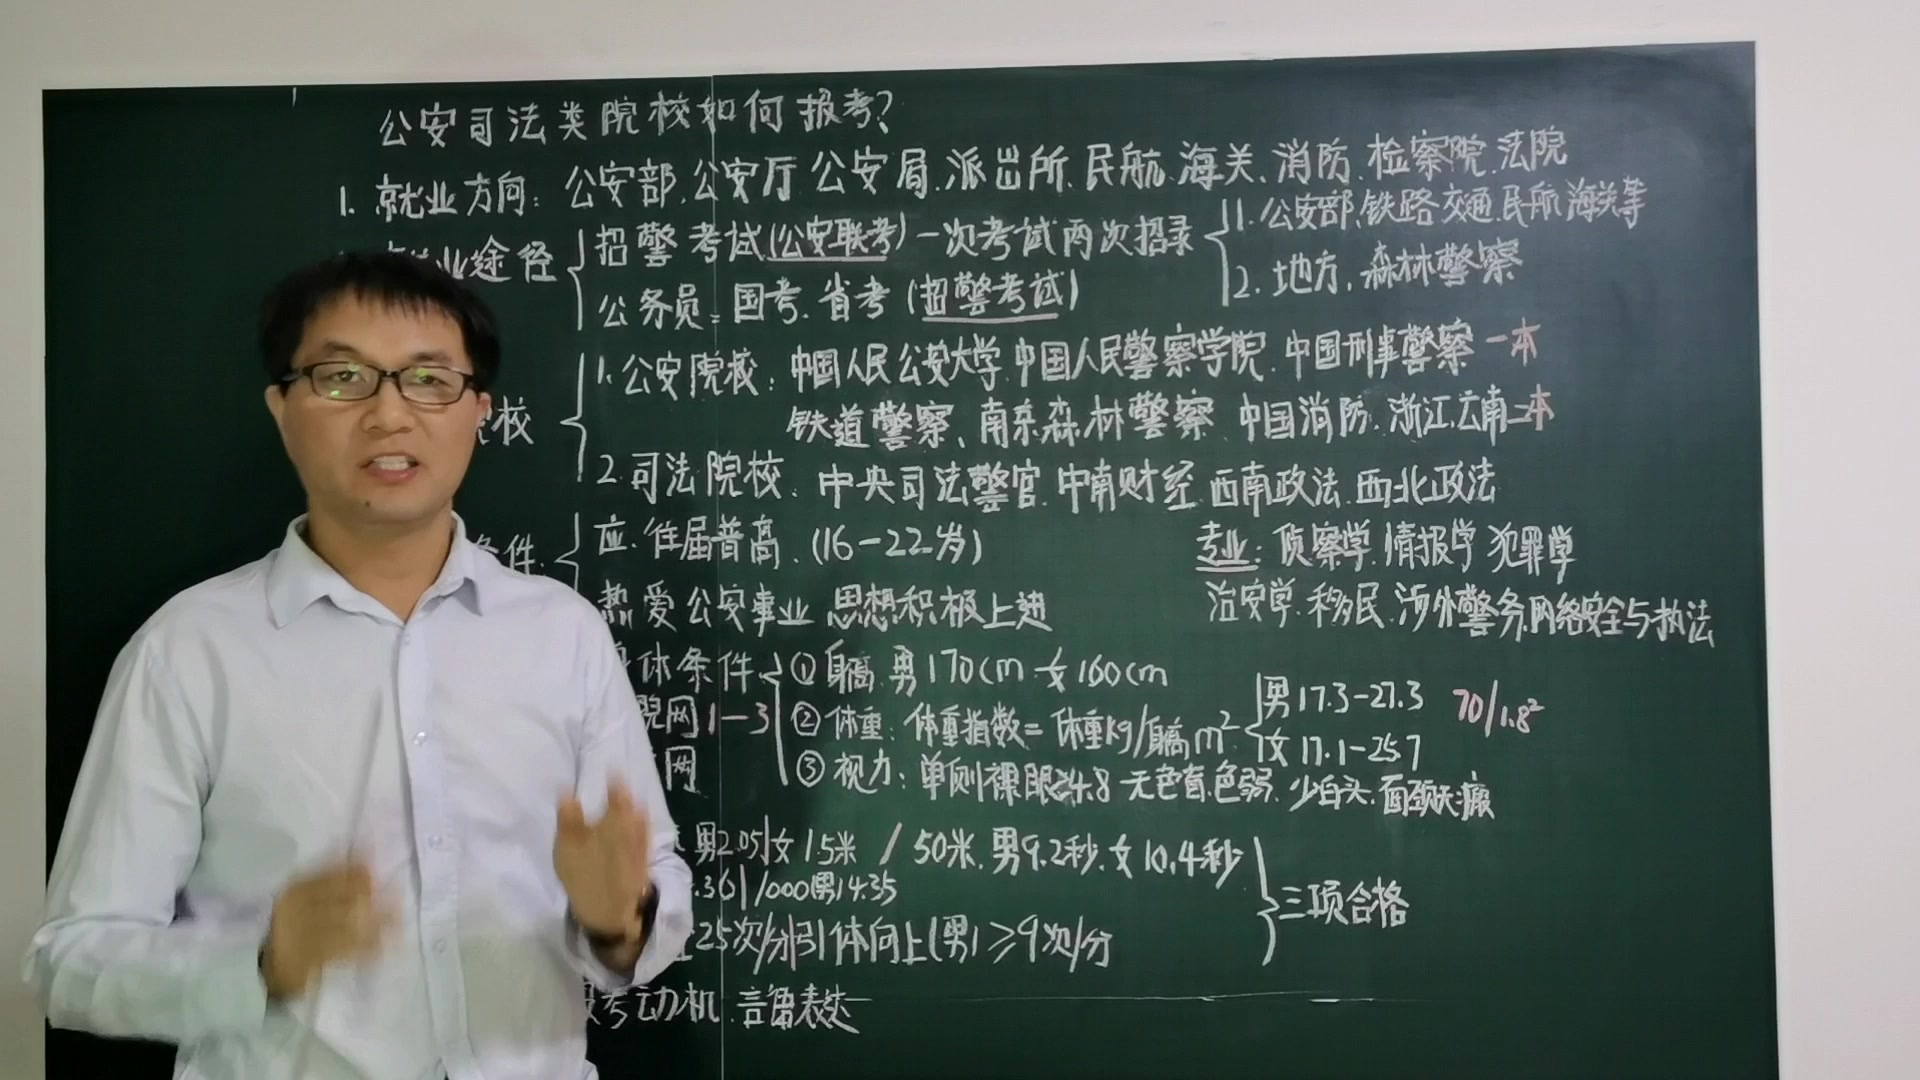 公安司法类院校如何报考?
1. 就业方向: 公安部.公安厅 公安局.派出所.民航.海关.消防.检察院.法院
业途径 招警考试(公安联考)一次考试两次招录 1.公安部,铁路交通,民航海关等
公务员:国考.省考(招警考试) 2.地方.森林警察
校 1.公安院校:中国人民公安大学.中国人民警察学院.中国刑事警察 一本
铁道警察、南京森林警察.中国消防.浙江,云南二本
2.司法院校:中央司法警官.中南财经.西南政法.西北政法
条件. 应.往届普高.(16-22岁) 专业:侦察学.情报学 犯罪学
热爱公安事业 思想积极上进 治安学.移民.涉外警务.网络安全与执法
身体条件 ①身高.男170cm 女160cm
院网1-3 ②体重:体重指数=体重kg/身高m² 男17.3-27.3 70/1.8²
网 女17.1-25.7
③视力:单侧裸眼≥4.8 无色盲.色弱.少白头.面颈无瘢
男2.05|女1.5米 / 50米.男9.2秒.女10.4秒 三项合格
.36|1000男14:35
25次/分|引体向上(男)≥9次/分
报考动机.言语表达